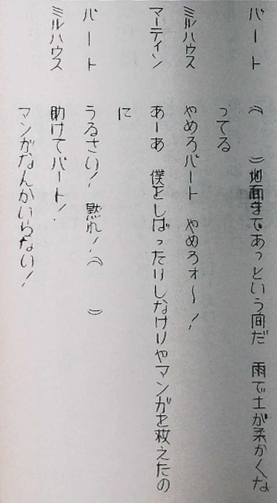 バート　（　）地面まであっという間だ　雨で土が柔かくな
ってる
ミルハウス　やめろバート　やめろォ〜！
マーティン　あーあ　僕をしばったりしなけりゃマンガを救えたの
に
バート　うるさい！　黙れ！（　）
ミルハウス　助けてバート！
マンガなんかいらない！